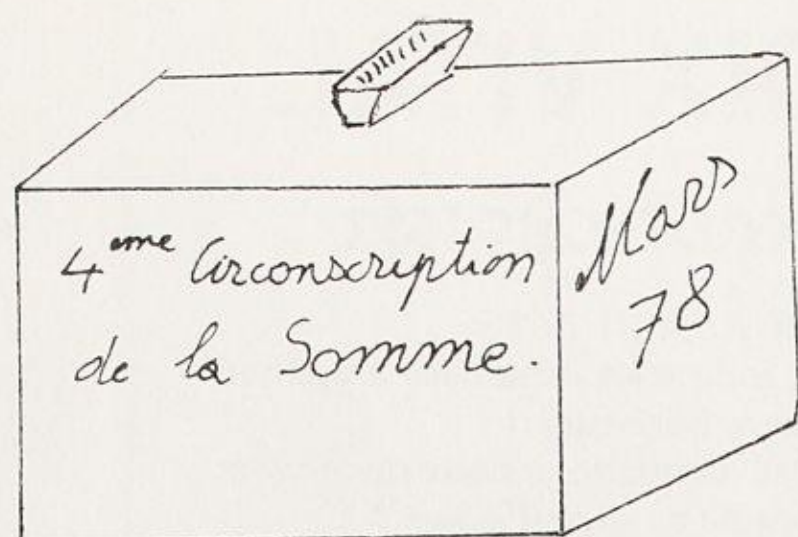 4eme Circonscription
de la Somme.
Mars
78